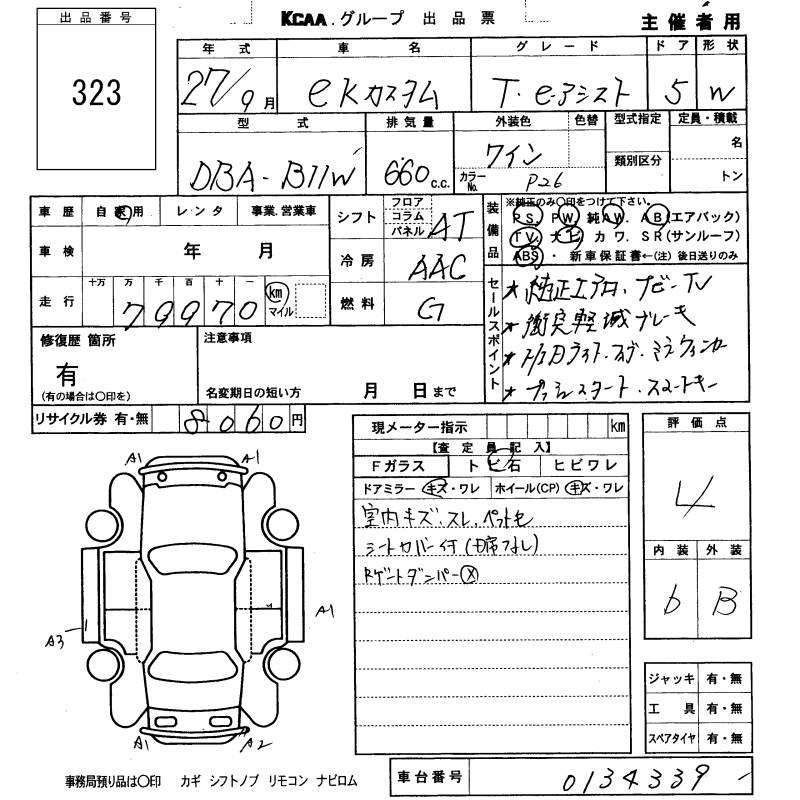 出品番号
323
KCAA.グループ 出品票
主催者用
年式 車名 グレード ドア 形状
27/9月 eKカスタム T・e-アシスト 5 W
型式 排気量 外装色 色替 型式指定 定員・積載
DBA-B11W 660c.c. ワイン 類別区分 名
カラーNo. P26 トン
車歴 自家用 レンタ 事業.営業車
シフト フロア コラム パネル AT
装備品 ※純正のみ○印をつけて下さい。
PS. PW. 純AW. AB(エアバック)
TV. ナビ カワ. SR(サンルーフ)
ABS・ 新車保証書←(注) 後日送りのみ
車検 年 月
冷房 AAC
走行 十万 万 千 百 十 一
79970 km マイル
燃料 G
セールスポイント
★純正エアロ、ナビ-TV
★衝突軽減ブレーキ
★プッシュスタート・スマートキー
修復歴 箇所
有
(有の場合は○印を)
注意事項
名変期日の短い方 月 日まで
リサイクル券 有・無 8060円
現メーター指示 km
【査定員記入】
Fガラス トビ石 ヒビワレ
ドアミラー キズ・ワレ ホイール(CP) キズ・ワレ
室内キズ.スレ.ペット毛
シートカバー付(1席なし)
Rゲートダンパー(X)
評価点
4
内装 外装
6 B
A1 A1
A3 1 A1
A1 A2
ジャッキ 有・無
工具 有・無
スペアタイヤ 有・無
事務局預り品は○印 カギ シフトノブ リモコン ナビロム
車台番号 0134339